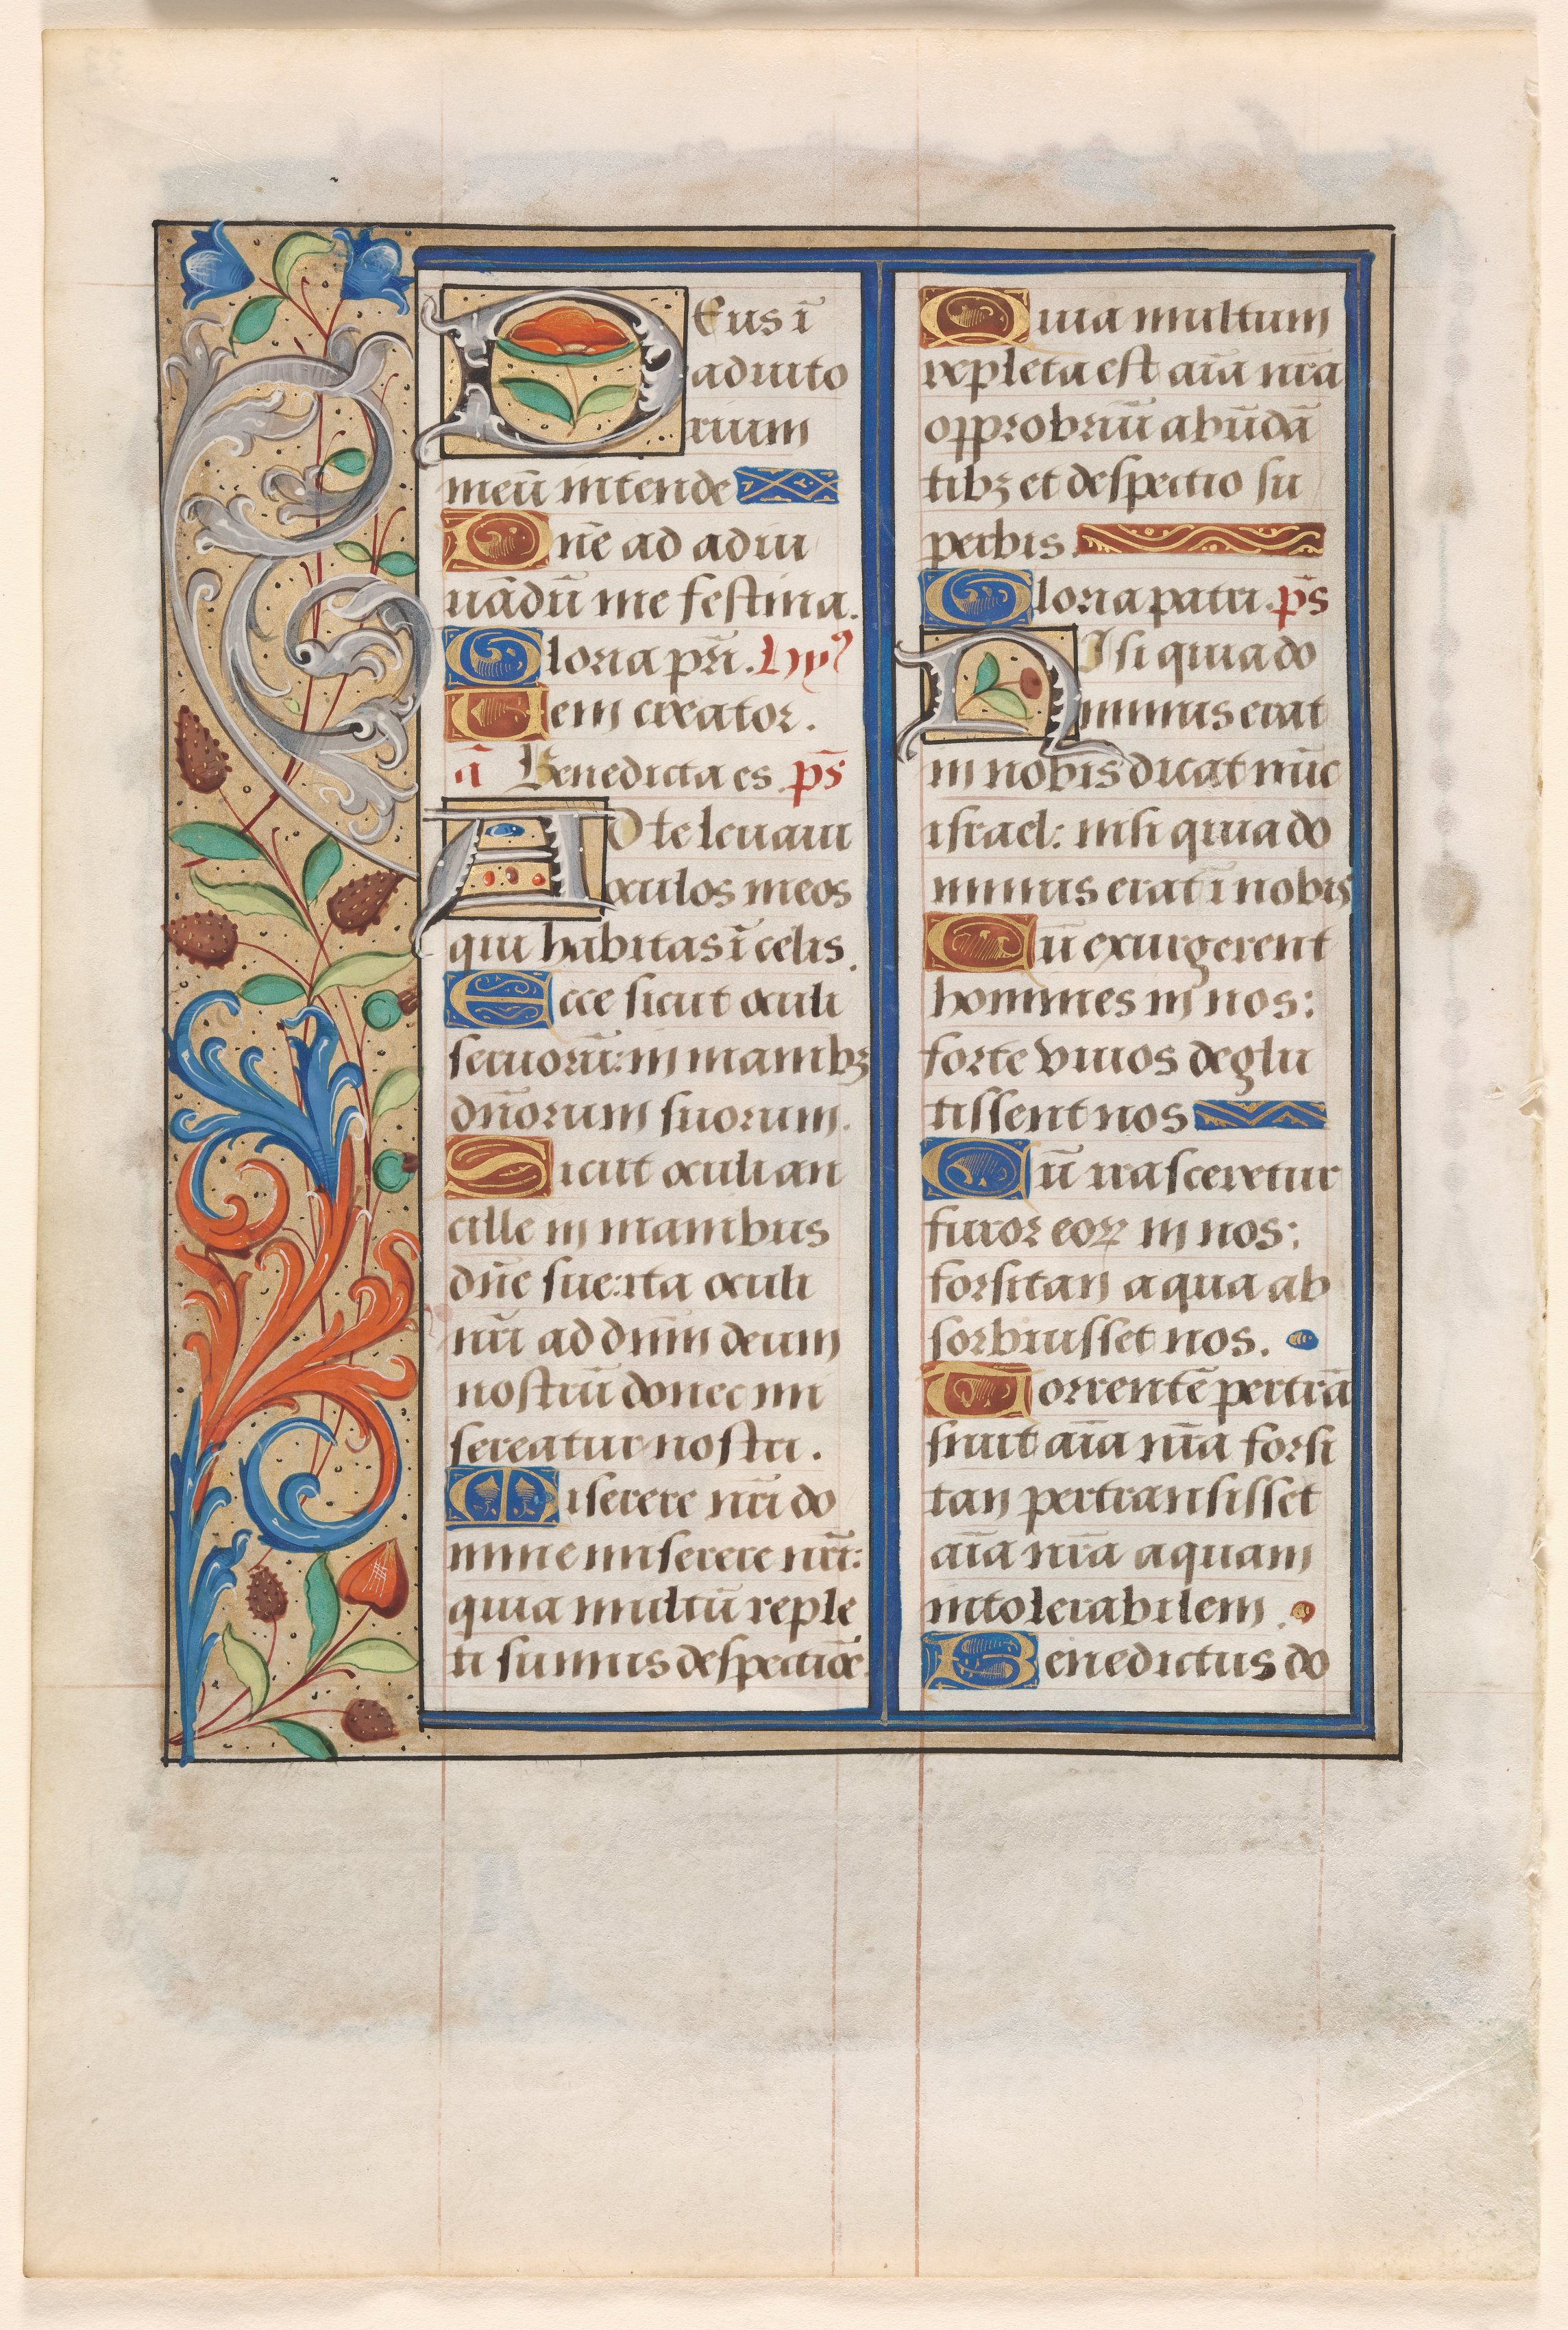 Deus ī
adiuto
rium
meū intende
Dn̄e ad adiu
uādū me festina.
Gloria pr̄i. hyꝰ
Uem creator.
a᷑ Benedicta es p̄s
AD te leuaui
oculos meos
qui habitas ī celis.
Ecce sicut oculi
seruorū: in manibꝫ
dn̄orum suorum.
Sicut oculi an
cille in manibus
dn̄e sue: ita oculi
nr̄i ad dnm̄ deum
nostrū donec mi
sereatur nostri.
Miserere nr̄i do
mine miserere nr̄i:
quia multū reple
ti sumus despectiōe.
Quia multum
repleta est aīa nr̄a
opprobriū abūdā
tibꝫ et despectio su
perbis.
Gloria patri. p̄s
NIsi quia do
minus erat
in nobis dicat nūc
israel: nisi quia do
minus erat ī nobis
Cū exurgerent
homines in nos:
forte viuos deglu
tissent nos
Cū irasceretur
furor eoꝝ in nos:
forsitan aqua ab
sorbuisset nos.
Torrentē pertrā
siuit aīa nr̄a forsi
tan pertransisset
aīa nr̄a aquam
intolerabilem.
Benedictus do